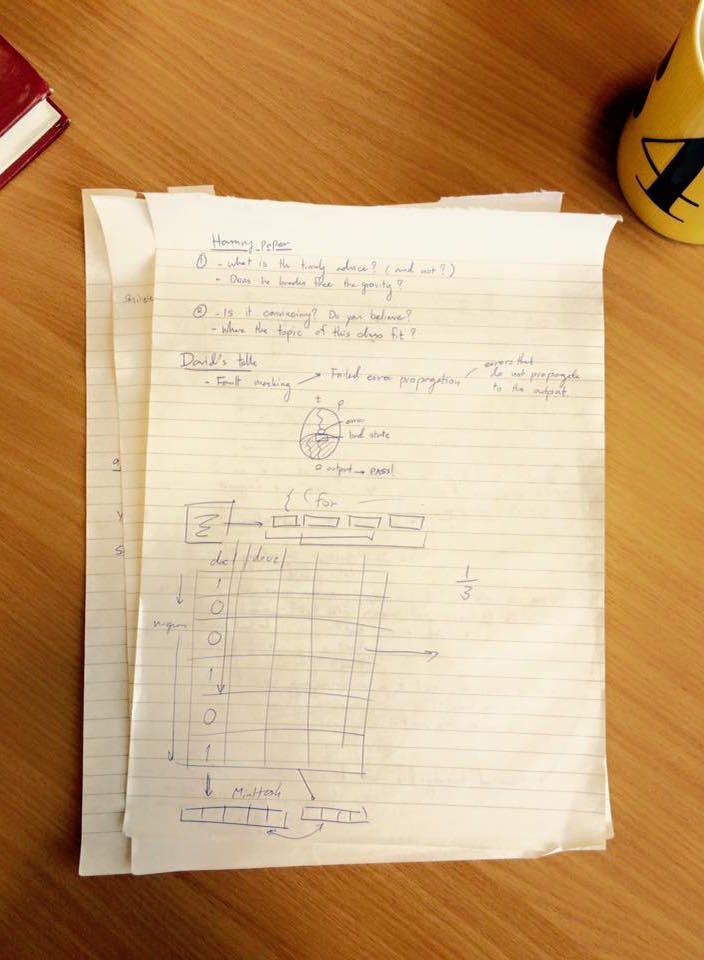 Hamming paper
① - What is the timely advice? (and not?)
- Does he the gravity?
② - Is it convincing? Do you believe?
- Where the topic of this class fit?
David's talk
- Fault masking → Failed error propagation
errors that
do not propagate
to the output.
t P
error
bad state
o output → PASS!
{ ( for
Σ
doc doc2
1
3
1
0
n-gram
0
1
0
1
MinHash
4